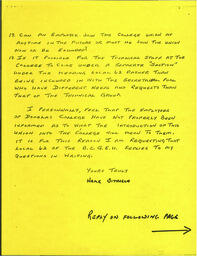 12. CAN AN EMPLOYEE JOIN THE COLLEGE UNION AT
ANYTIME IN THE FUTURE OR MUST HE JOIN THE UNION
NOW OR BE EXCLUDED
13. IS IT POSSIBLE FOR THE TECHNICAL STAFF AT THE
COLLEGE TO COME UNDER A SEPARATE "SECTION"
UNDER THE LOCAL 62 RATHER THAN
BEING INCLUDED IN WITH THE SECRETARIAL POOL
WHO HAVE DIFFERENT NEEDS AND REQUESTS THAN
THAT OF THE TECHNICAL GROUP.
I PERSONALLY, FEEL THAT THE EMPLOYEES
OF DOUGLAS COLLEGE HAVE NOT PROPERLY BEEN
INFORMED AS TO WHAT THE INTRODUCTION OF THIS
UNION INTO THE COLLEGE WILL MEAN TO THEM.
IT IS FOR THIS REASON I AM REQUESTING THAT
LOCAL 62 OF THE B.C.G.E.U. REPLIES TO MY
QUESTIONS IN WRITING.
YOURS TRULY
HANK
REPLY ON FOLLOWING PAGE